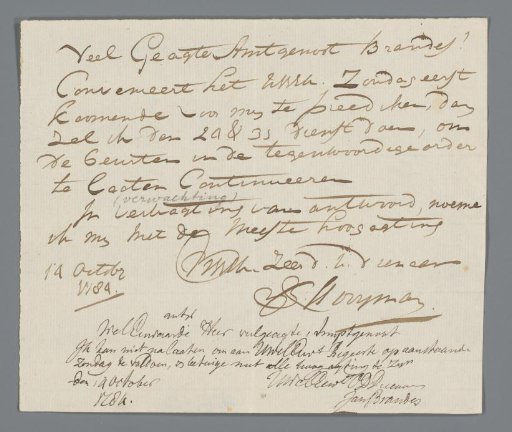 Veel Geagte Amtgenoot Brandes!
Convenieert het UWEh. Zondag eerst
komende voor my te preediken, dan
zal ik den 24 & 31 dienst doen, om
de beurten in de tegenwoordige order
te laaten Continueeren
(verwachting)
In verwagting van antwoord, noeme
ik my met de meeste hoogagting
UWEh. Zeer d. v. dienaar
14 Octobr
1784.
S Kooyman
antw
WelEerwaarde Heer veelgeagte Amptgenoot
Ik kan niet nalaaten om aan UWelEerw begeerte op aanstaande
Zondag te voldoen, en betuige met alle hoogagting te zyn
den 14 October
UWelEerw D Dienaar
1784.
Jan Brandes